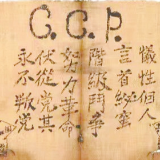 C.C.P.
犠性個人
言首秘蜜
階級鬥争
努力革命
伏從党其
永不叛党